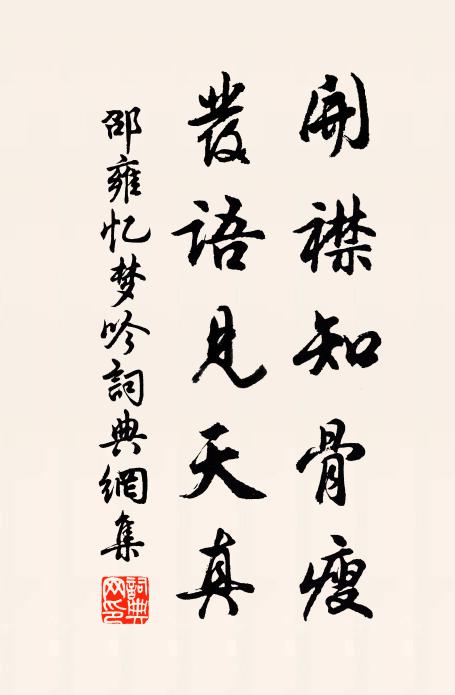 開襟知骨瘦
發語見天真
邵雍忆梦吟詞典網集
詞典網印